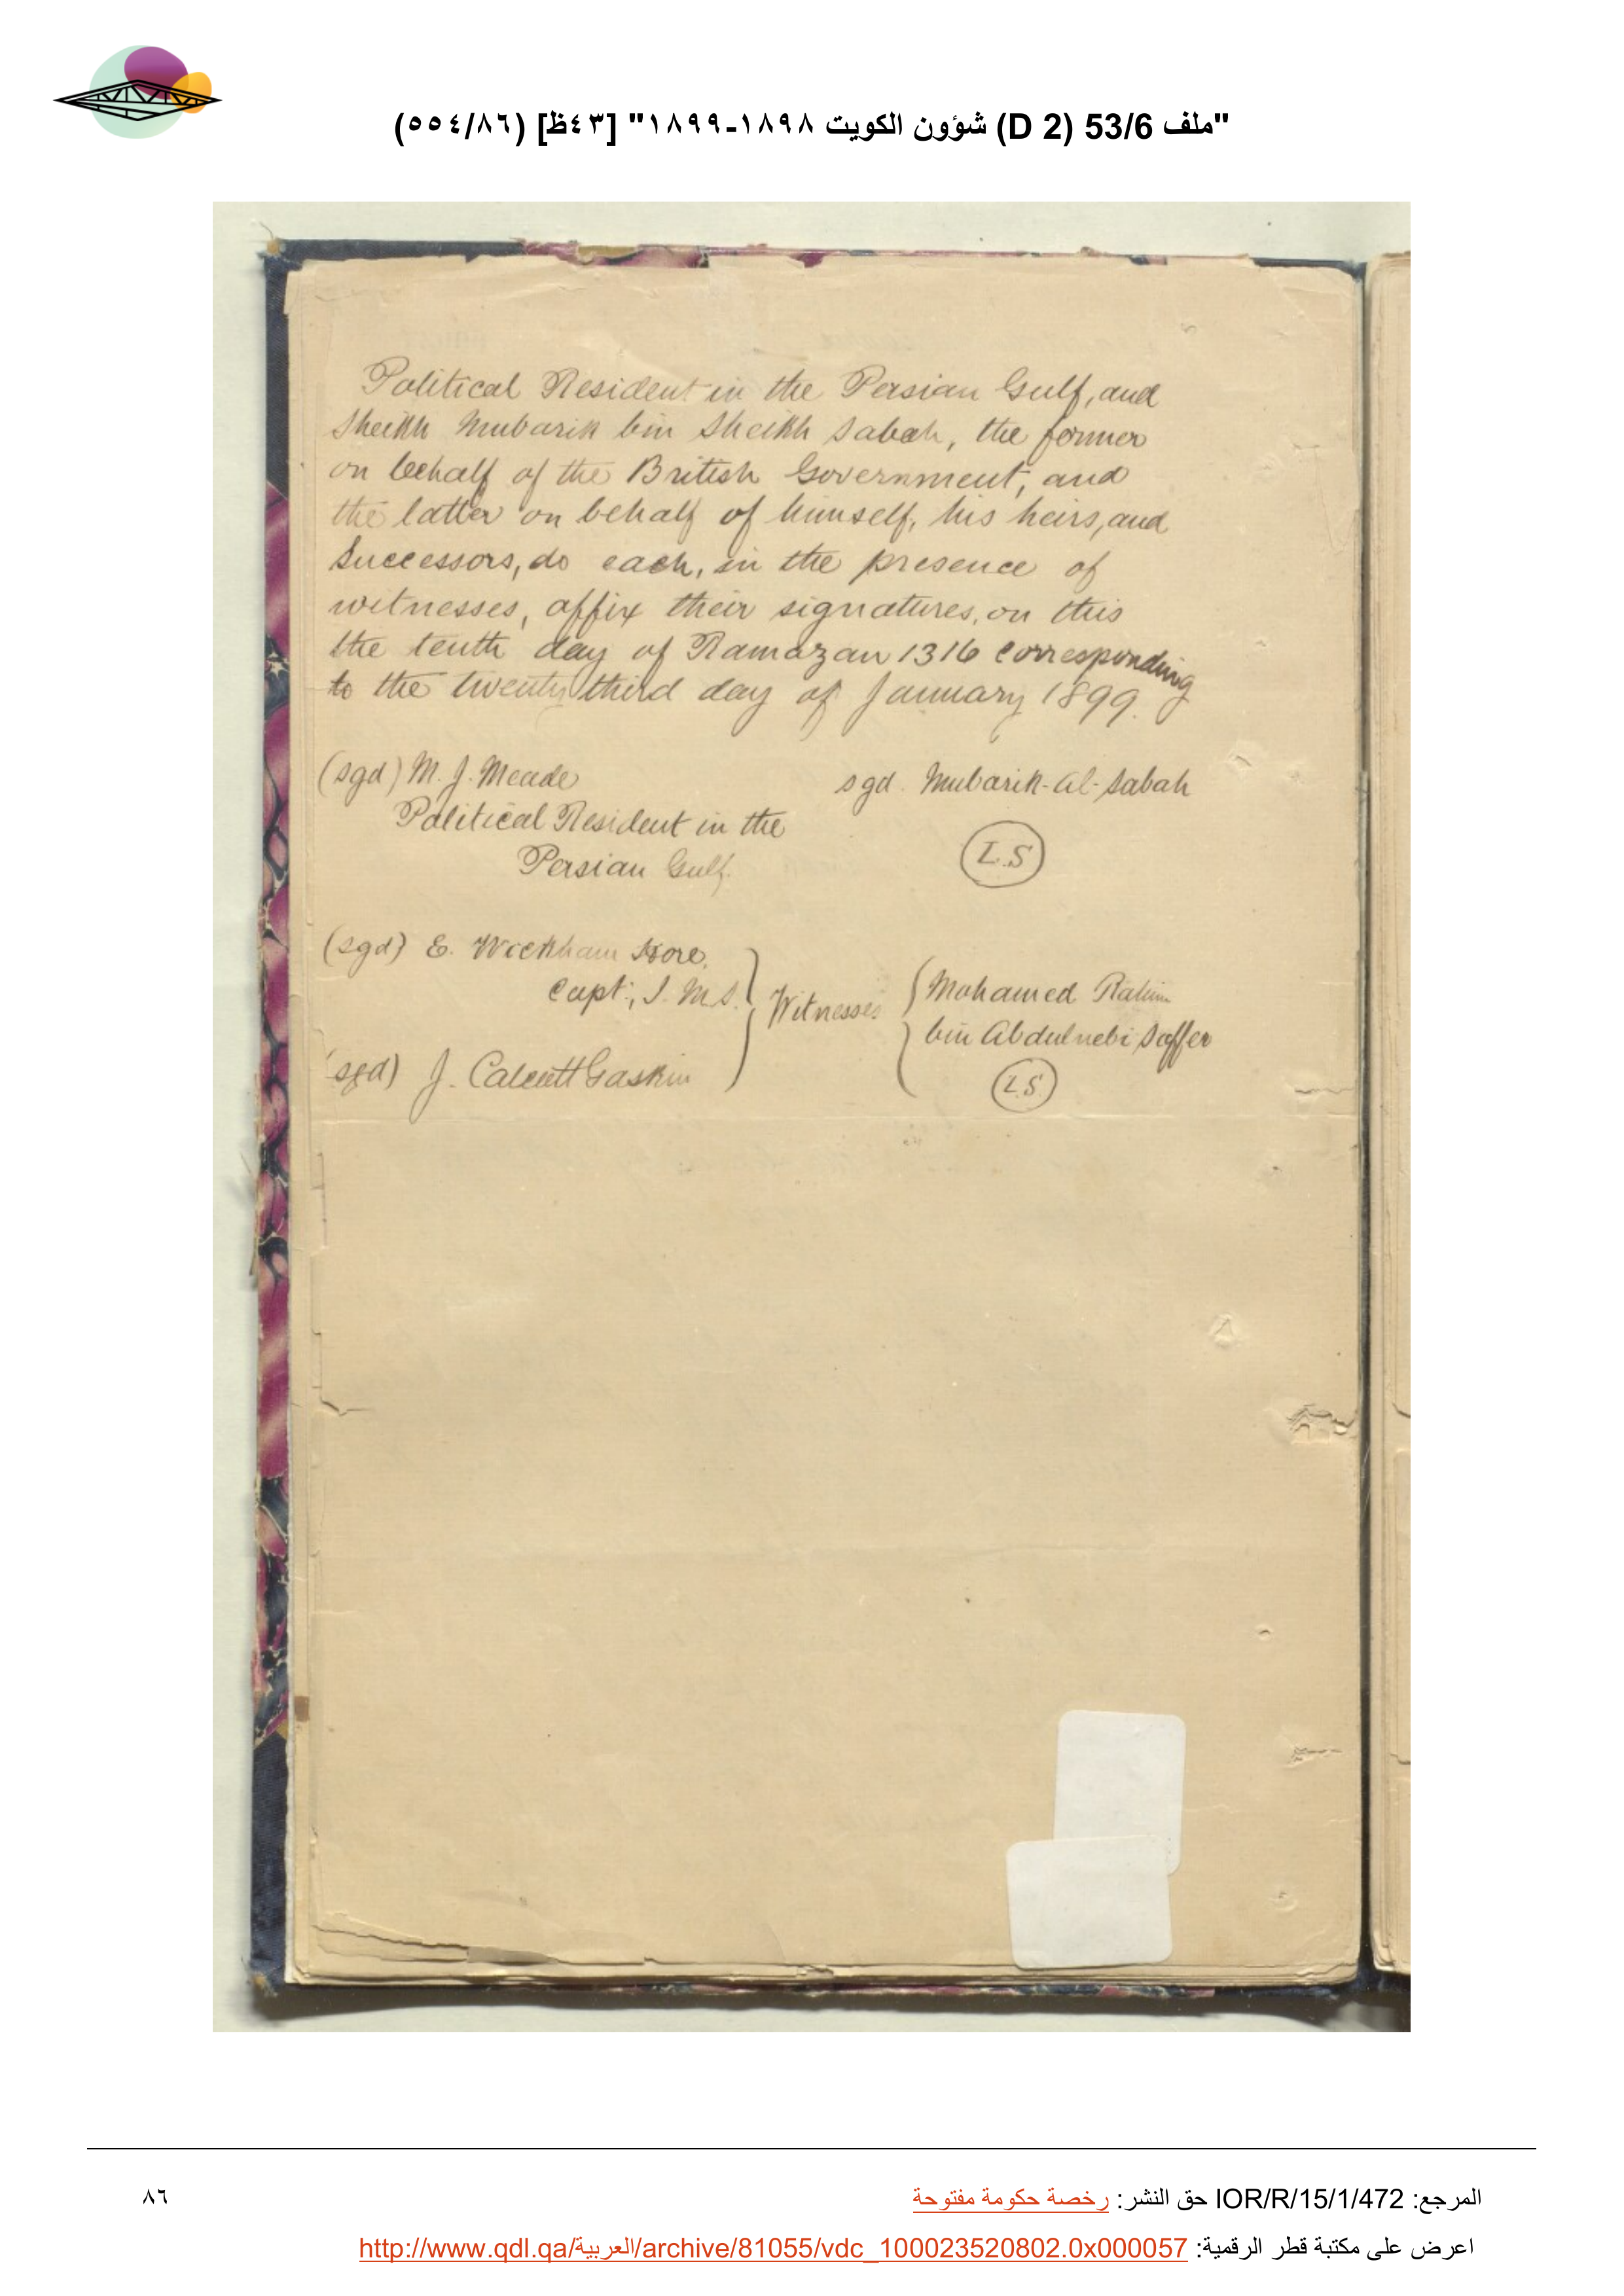 "ملف 53/6 (D 2) شؤون الكويت ١٨٩٨-١٨٩٩" [٤٣ظ] (٥٥٤/٨٦)
Political Resident in the Persian Gulf, and
Sheikh Mubarik bin Sheikh Sabah, the former
on behalf of the British Government, and
the latter on behalf of himself, his heirs, and
Successors, do each, in the presence of
witnesses, affix their signatures, on this
the tenth day of Ramazan 1316 corresponding
to the twenty third day of January 1899.
(sgd) M. J. Meade sgd. Mubarik-al-Sabah
Political Resident in the
Persian Gulf. L.S
(sgd) E. Wickham Hore.
Capt:, I.M.S. Witnesses Mohamed Rahim
bin Abdulnebi Saffer
sgd) J. Calcott Gaskin L.S.
المرجع: IOR/R/15/1/472 حق النشر: رخصة حكومة مفتوحة
٨٦
اعرض على مكتبة قطر الرقمية: http://www.qdl.qa/العربية/archive/81055/vdc_100023520802.0x000057